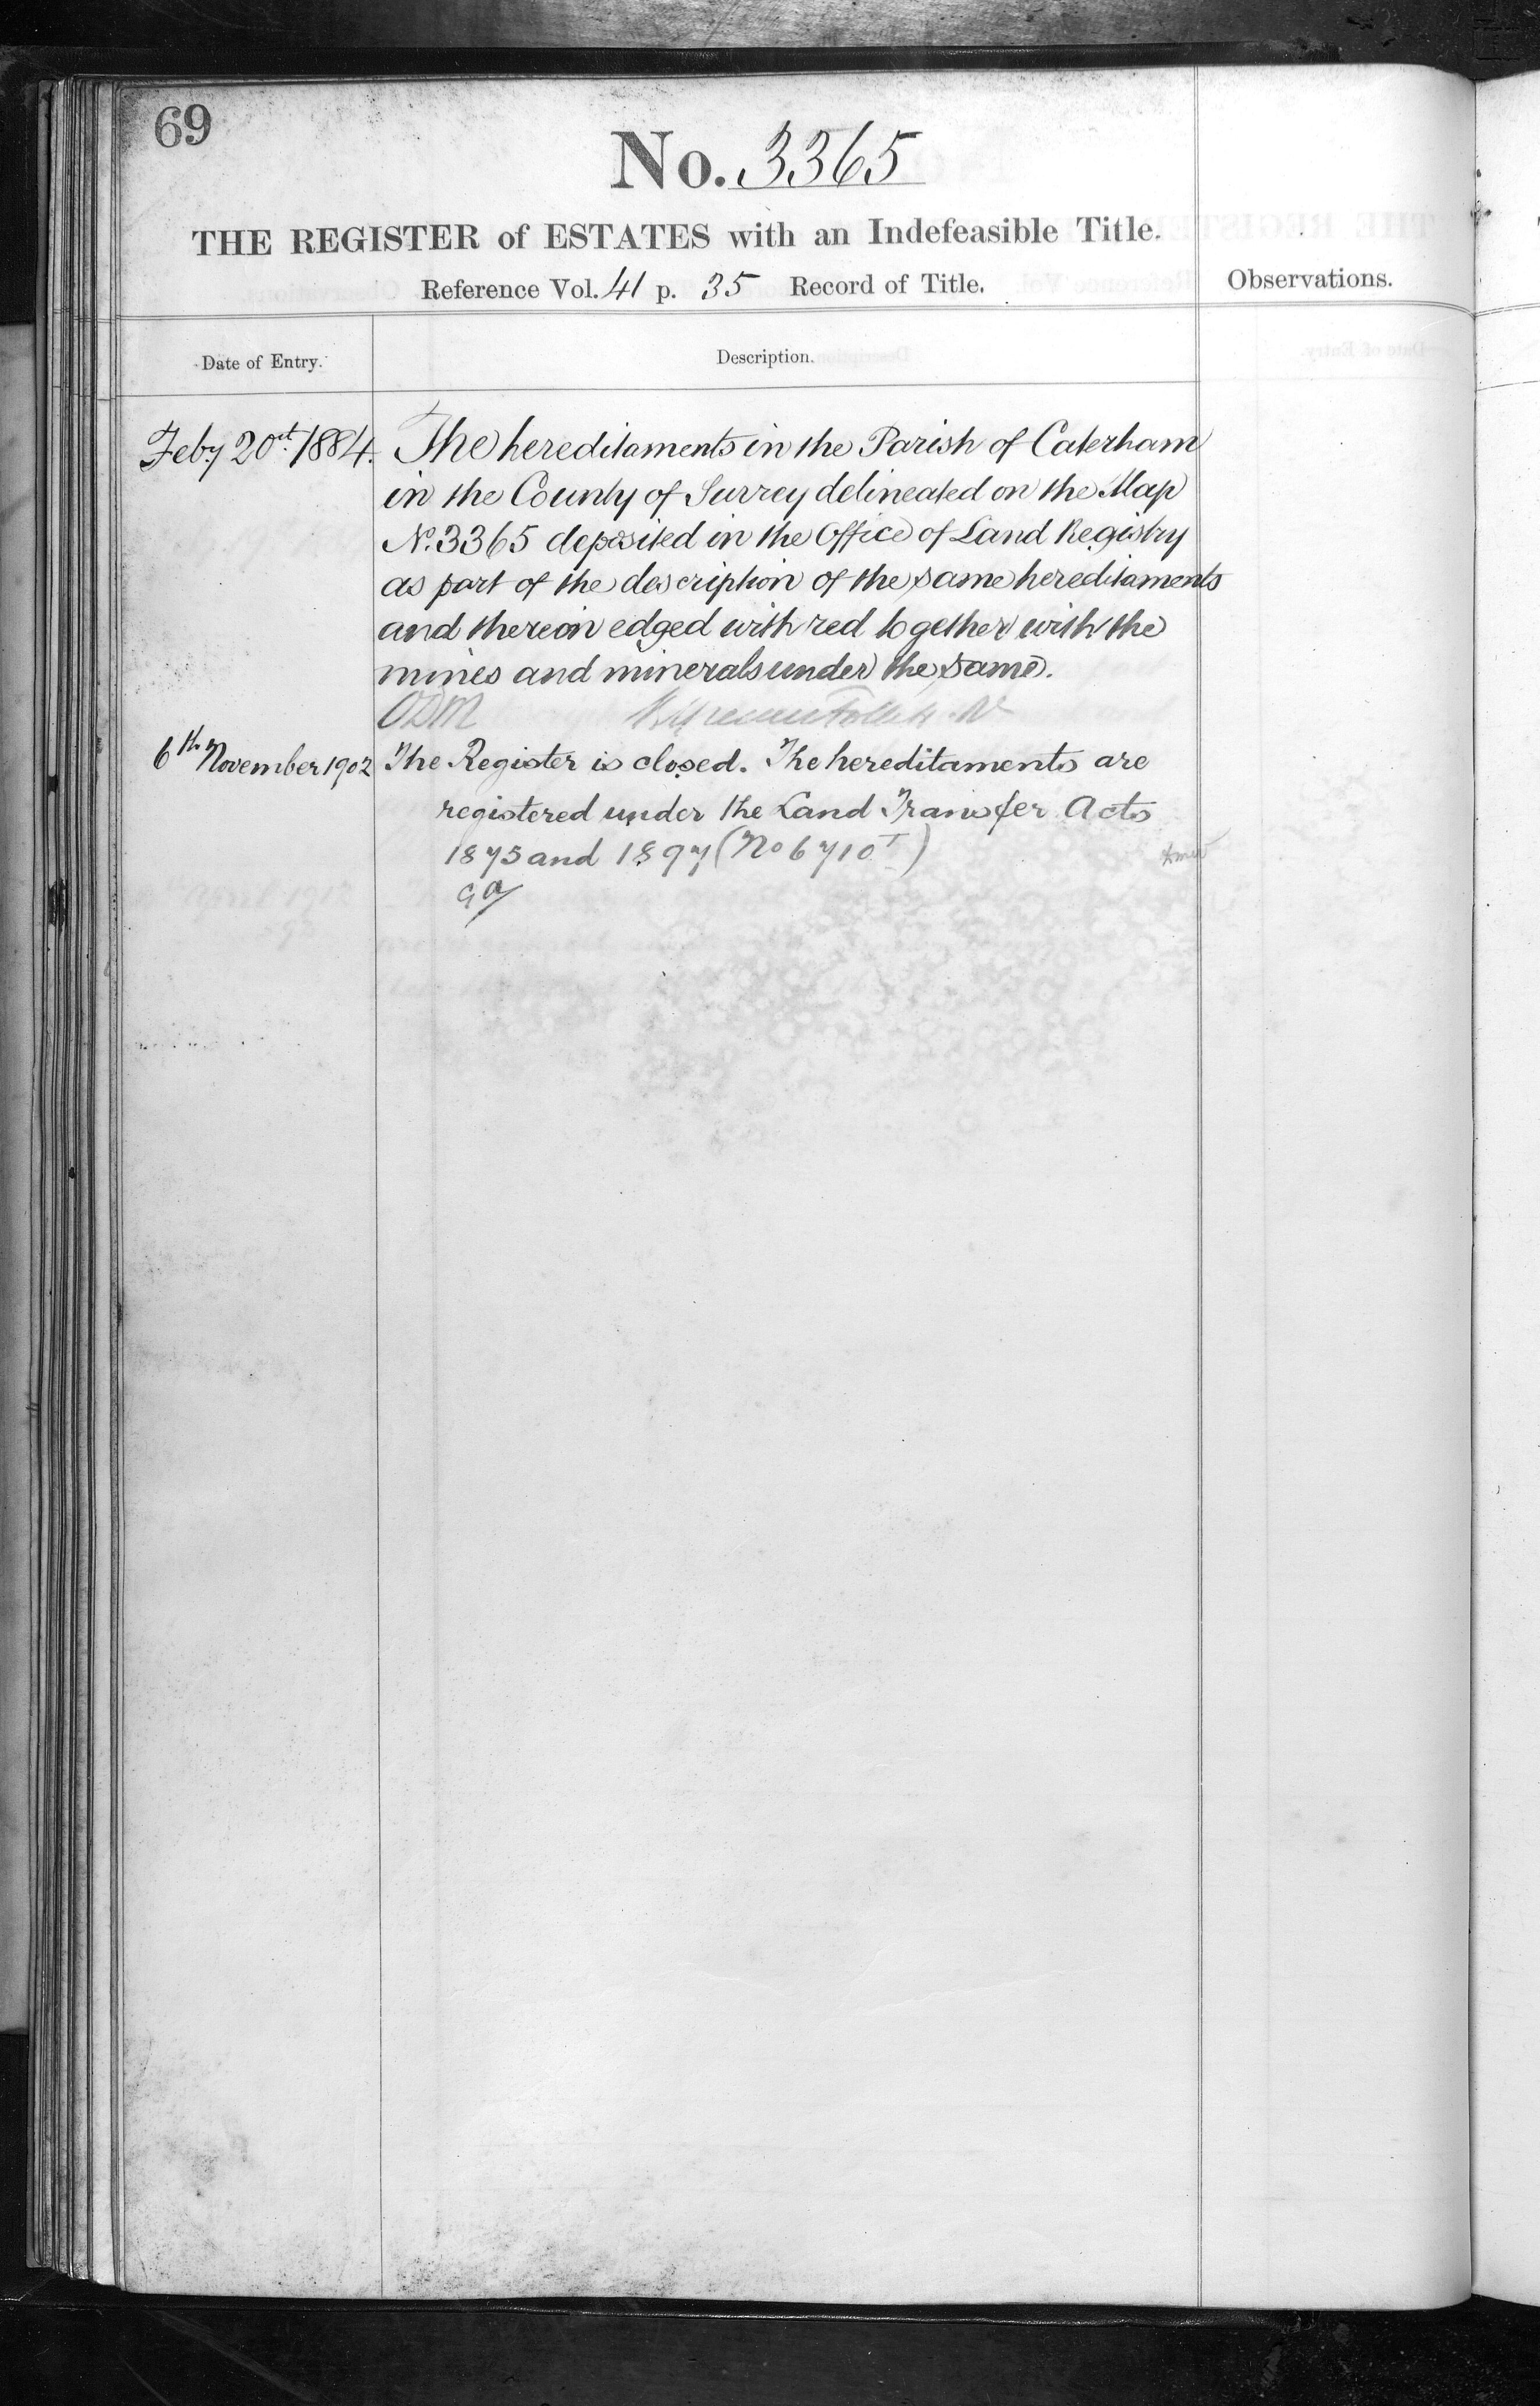 69
No. 3365
THE REGISTER of ESTATES with an Indefeasible Title.
Reference Vol. 41 p. 35 Record of Title.
Observations.
Date of Entry.
Description.
Feby 20st. 1884. The hereditaments in the Parish of Caterham
in the County of Surrey delineated on the Map
N. 3365 deposited in the Office of Land Registry
as part of the description of the same hereditaments
and thereon edged with red together with the
mines and minerals under the same.
6th November 1902 The Register is closed. The hereditaments are
registered under the Land Transfer Acts
1875 and 1897 (No 6710 I)